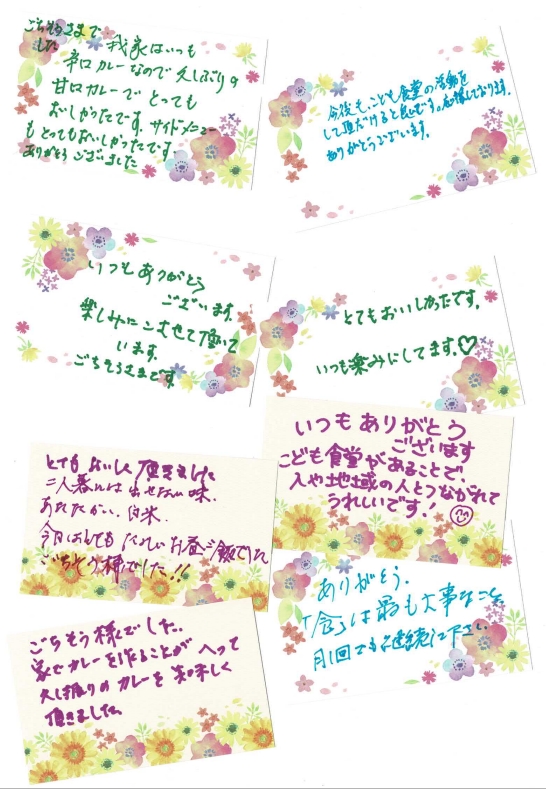 ごちそうさまで
した 我家はいつも
辛口カレーなので久しぶりの
甘口カレーでとっても
おいしかったです。サイドメニュー
もとってもおいしかったです。
ありがとうございました
今後も、こども食堂の活動を
して頂だけると良いです。応援しております。
ありがとうございます。
いつもありがとう
ございます。
楽しみにこさせて頂いて
います。
ごちそうさまです
とてもおいしかったです。
いつも楽みにしてます。♡
とてもおいしく頂きました
二人暮しは出せない味。
あたたかい、白米。
今日はとても お昼ご飯でした
ごちそう様でした!!
いつもありがとう
ございます
こども食堂があることで、
人や地域の人とつながれて
うれしいです!
ごちそう様でした。
家でカレーを作ることが へって
久し振りのカレーを美味しく
頂きました。
ありがとう。
「念」は最も大事なこと。
月1回でも継続に下さい。